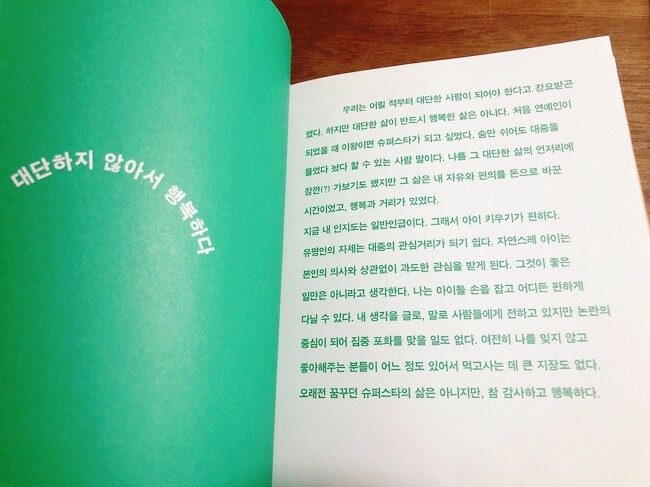 대단하지 않아서 행복하다
우리는 어릴 적부터 대단한 사람이 되어야 한다고 강요받곤
했다. 하지만 대단한 삶이 반드시 행복한 삶은 아니다. 처음 연예인이
되었을 때 이왕이면 슈퍼스타가 되고 싶었다. 숨만 쉬어도 대중을
들었다 놨다 할 수 있는 사람 말이다. 나름 그 대단한 삶의 언저리에
잠깐(?) 가보기도 했지만 그 삶은 내 자유와 편의를 돈으로 바꾼
시간이었고, 행복과 거리가 있었다.
지금 내 인지도는 일반인급이다. 그래서 아이 키우기가 편하다.
유명인의 자제는 대중의 관심거리가 되기 쉽다. 자연스레 아이는
본인의 의사와 상관없이 과도한 관심을 받게 된다. 그것이 좋은
일만은 아니라고 생각한다. 나는 아이들 손을 잡고 어디든 편하게
다닐 수 있다. 내 생각을 글로, 말로 사람들에게 전하고 있지만 논란의
중심이 되어 집중 포화를 맞을 일도 없다. 여전히 나를 잊지 않고
좋아해주는 분들이 어느 정도 있어서 먹고사는 데 큰 지장도 없다.
오래전 꿈꾸던 슈퍼스타의 삶은 아니지만, 참 감사하고 행복하다.